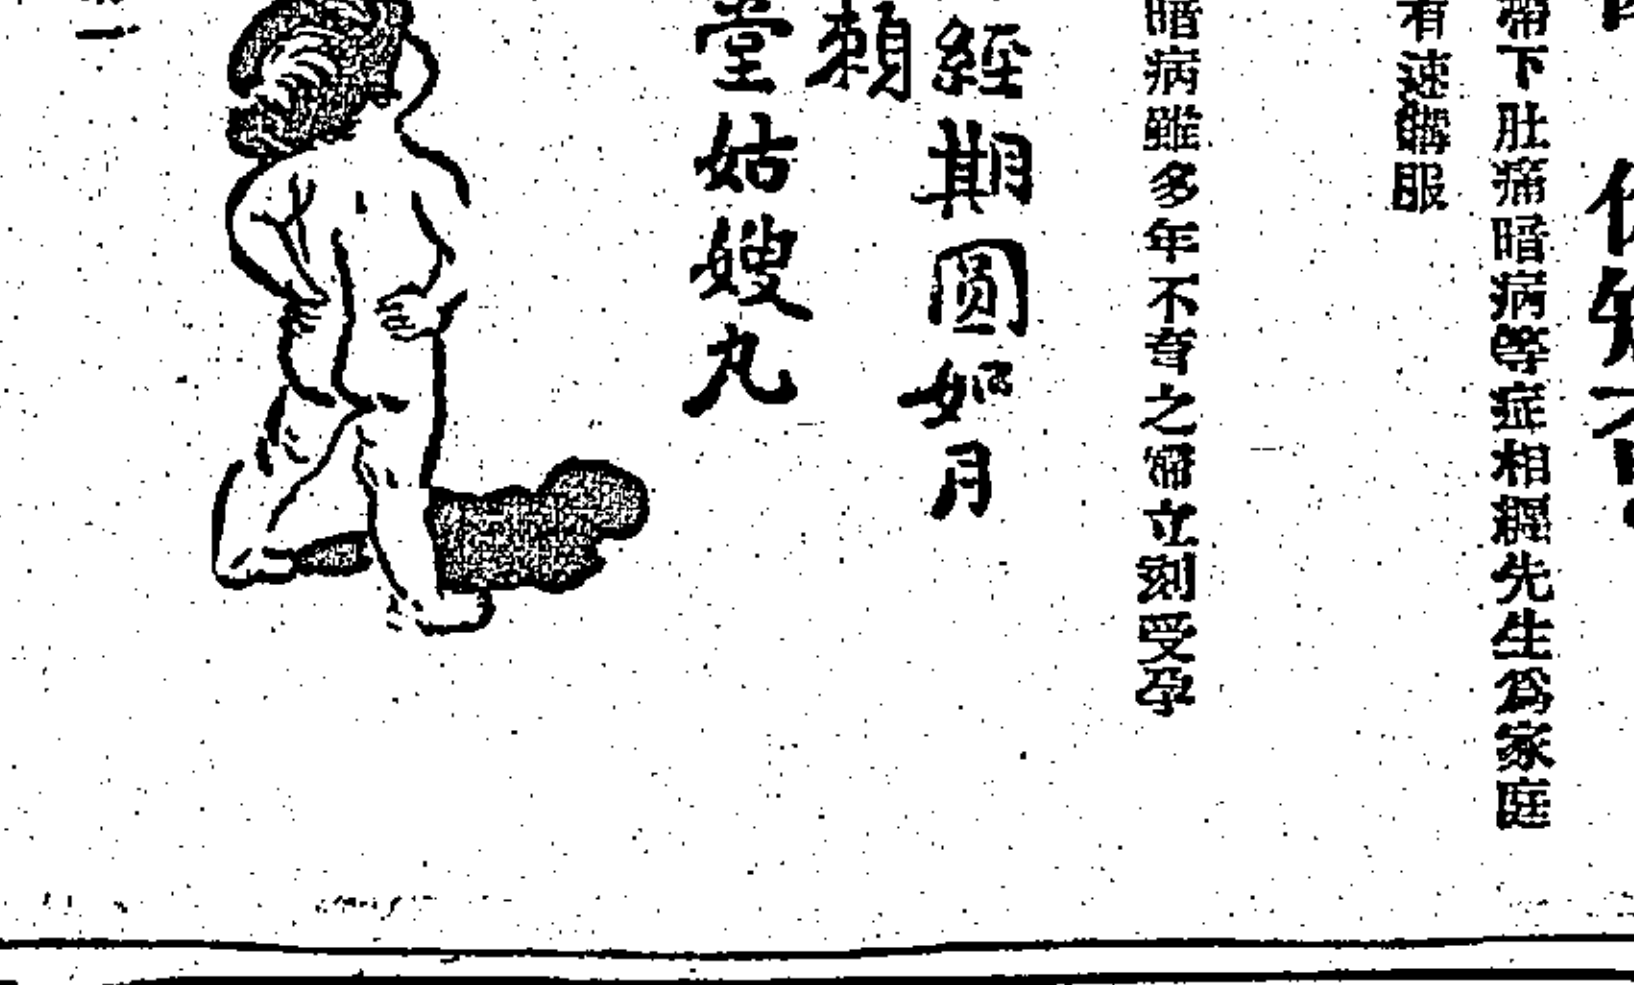 帶下肚痛暗病等症相纒先生爲家庭
有速購服
暗病雖多年不育之婦立刻受孕
經期圓如月
賴
堂姑嫂丸
第一